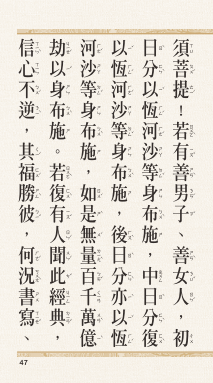 須菩提！若有善男子、善女人，初
日分以恆河沙等身布施，中日分復
以恆河沙等身布施，後日分亦以恆
河沙等身布施，如是無量百千萬億
劫以身布施。若復有人聞此經典，
信心不逆，其福勝彼，何況書寫、
47